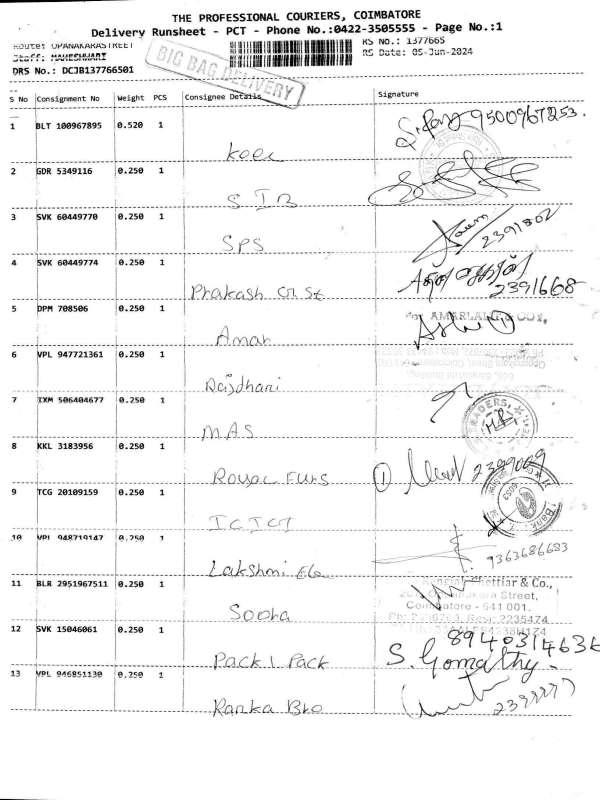 THE PROFESSIONAL COURIERS, COIMBATORE
Delivery Runsheet - PCT - Phone No.:0422-3505555 - Page No.:1
Route: OPANAKARASTREET RS No.: 1377665
Staff: MAHESHWARI RS Date: 05-Jun-2024
DRS No.: DCJB137766501
BIG BAG DELIVERY
S No Consignment No Weight PCS Consignee Details Signature
1 BLT 100967895 0.520 1 9500967253.
2 GDR 5349116 0.250 1
SIB
3 SVK 60449770 0.250 1 2391802
SPS
4 SVK 60449774 0.250 1
Prakash 2391668
5 DPM 708506 0.250 1 AMARLAL & COY.,
Amar
6 VPL 947721361 0.250 1
Rajdhari
7 IXM 506404677 0.250 1
MAS
8 KKL 3183956 0.250 1
Royal Furs
9 TCG 20109159 0.250 1 Bank
ICICI
10 VPL 948719147 0.250 1 9363686683
Lakshmi Ele
11 BLR 2951967511 0.250 1 Chettiar & Co.,
Street,
Coimbatore - 641 001.
Resi: 2235474
Sooha
12 SVK 15046061 0.250 1 8940314636
Pack 1 Pack S. Gomathy.
13 VPL 946851130 0.250 1
Ranka Bro